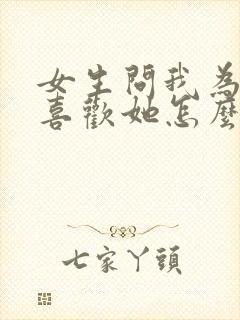 女生問我為
喜歡她怎麼
七家丫頭